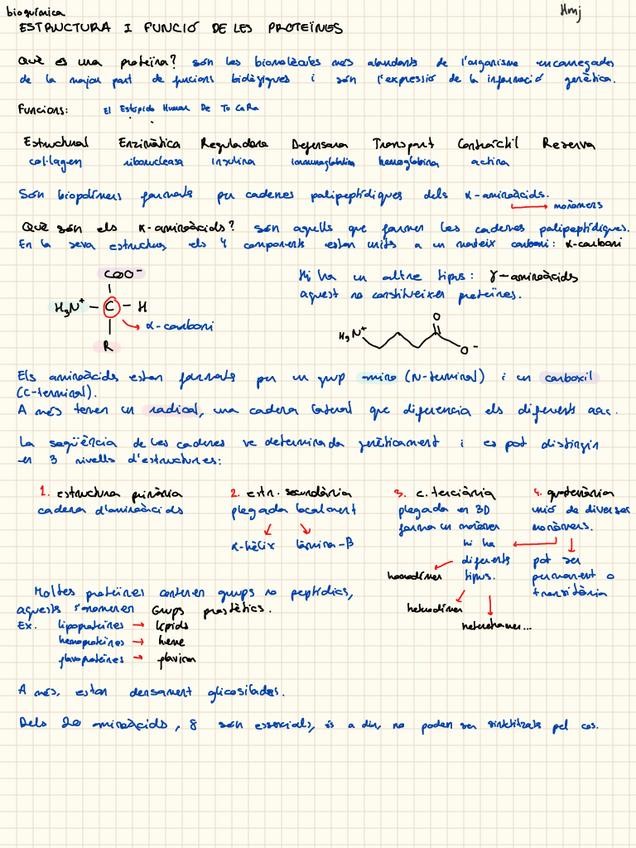 bioquímica
Hmj
ESTRUCTURA I FUNCIÓ DE LES PROTEÏNES
Què és una proteïna? són les biomolècules més abundants de l'organisme encarregades
de la major part de funcions biològiques i són l'expressió de la informació genètica.
Funcions: El Estúpido Human De To CaRa
Estructural Enzimàtica Reguladora Defensora Transport Contràctil Reserva
col·lagen ribonucleasa insulina immunoglobulina hemoglobina actina
Són biopolímers formats per cadenes polipeptídiques dels α-aminoàcids.
→ monòmers
Què són els α-aminoàcids? són aquells que formen les cadenes polipeptídiques.
En la seva estructura els 4 components estan units a un mateix carboni: α-carboni
COO⁻
H₃N⁺ – C – H
→ α-carboni
R
Hi ha un altre tipus: γ-aminoàcids
aquest no constitueixen proteïnes.
O
H₃N⁺
O⁻
Els aminoàcids estan formats per un grup amino (N-terminal) i un carboxil
(C-terminal).
A més tenen un radical, una cadena lateral que diferencia els diferents aac.
La seqüència de les cadenes ve determinada genèticament i es pot distingir
en 3 nivells d'estructures:
1. estructura primària
cadena d'aminoàcids
2. estr. secundària
plegada localment
α-hèlix làmina-β
3. c. terciària
plegada en 3D
forma un monòmer
4. quaternària
unió de diversos
monòmers.
hi ha
diferents
tipus.
pot ser
permanent o
transitòria
homodímer
heterodímer
Moltes proteïnes contenen grups no peptídics,
aquests s'anomenen Grups prostètics.
Ex. lipoproteïnes → lípids
hemoproteïnes → heme
flavoproteïnes → flavina
A més, estan densament glicosilades.
Dels 20 aminoàcids, 8 són essencials, és a dir, no poden ser sintetitzats pel cos.